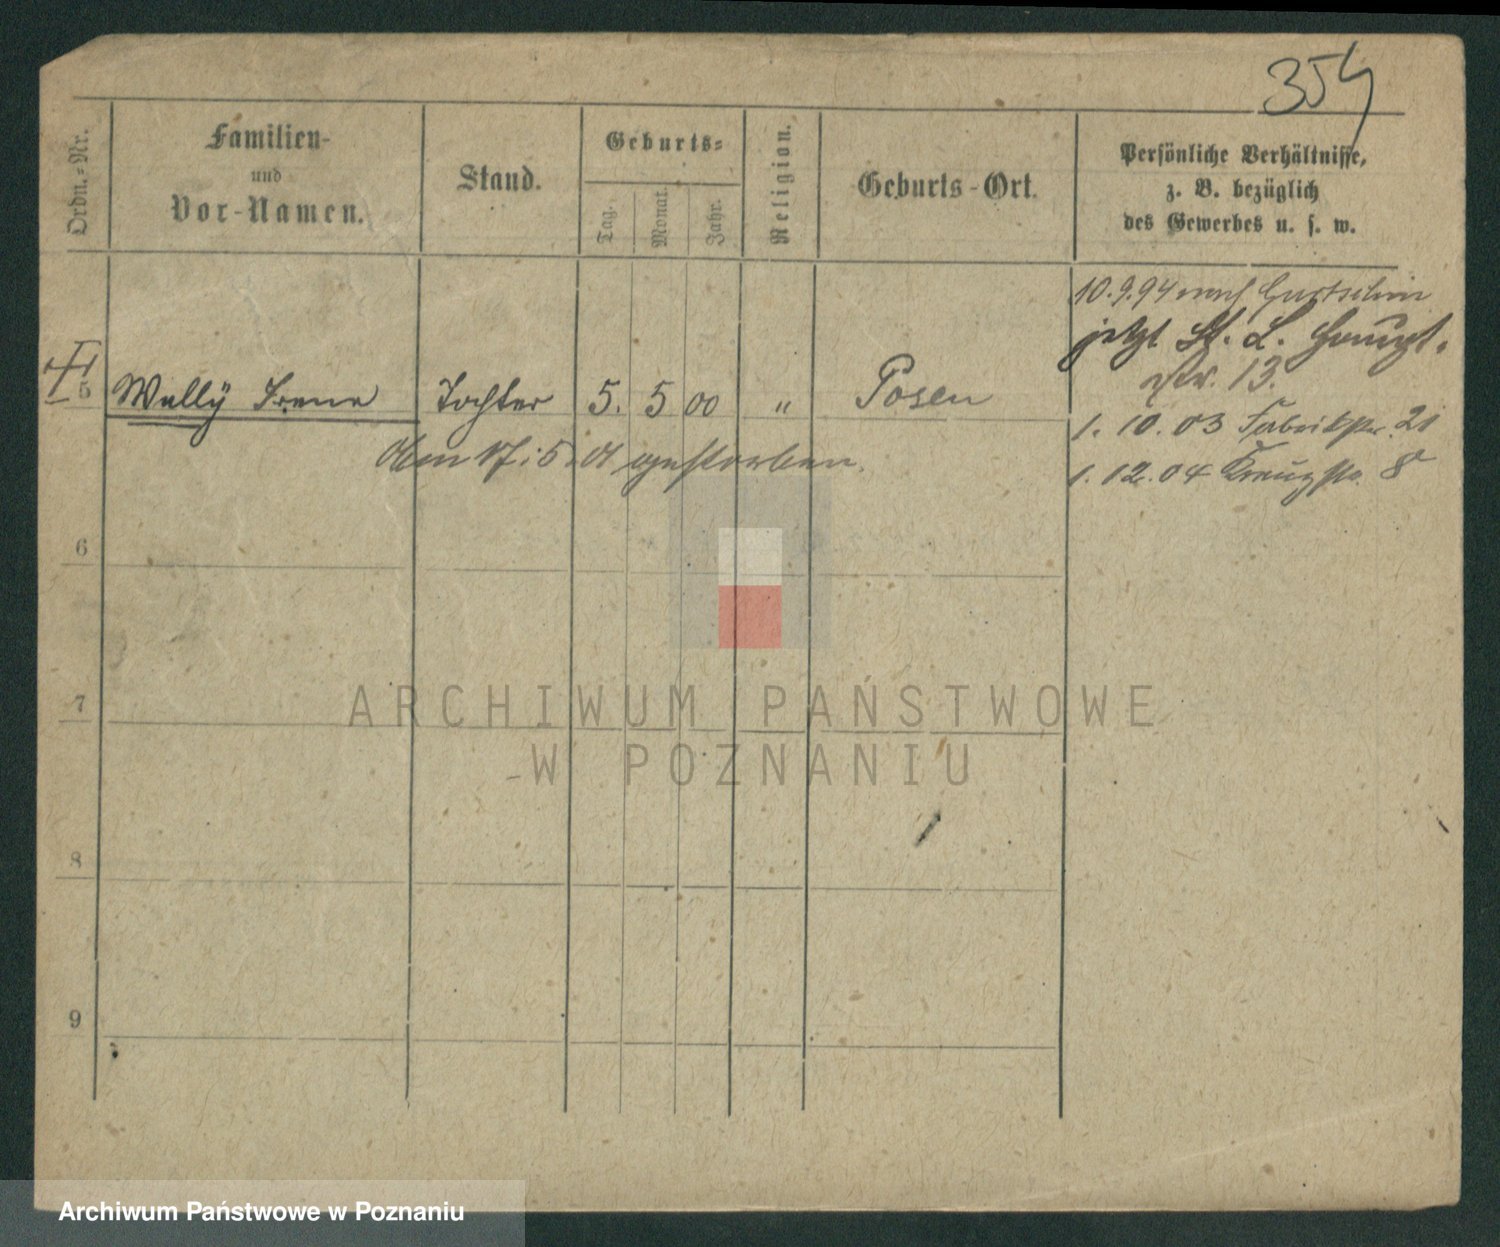 354
Ordn.-Nr.
Familien-
und
Vor-Namen.
Stand.
Geburts-
Tag.
Monat.
Jahr.
Religion.
Geburts-Ort.
Persönliche Verhältnisse,
z. B. bezüglich
des Gewerbes u. s. w.
10.9.94 nach Gurtschin
jetzt St. L. Haupt.
Str. 13.
5 Wally Irene Tochter 5. 5 00 " Posen
1. 10. 03 Fabrikstr. 21
den 17. 5. 01 gestorben.
1. 12. 04 Kreuzstr. 8
6
7
8
9
ARCHIWUM PAŃSTWOWE
W POZNANIU
Archiwum Państwowe w Poznaniu